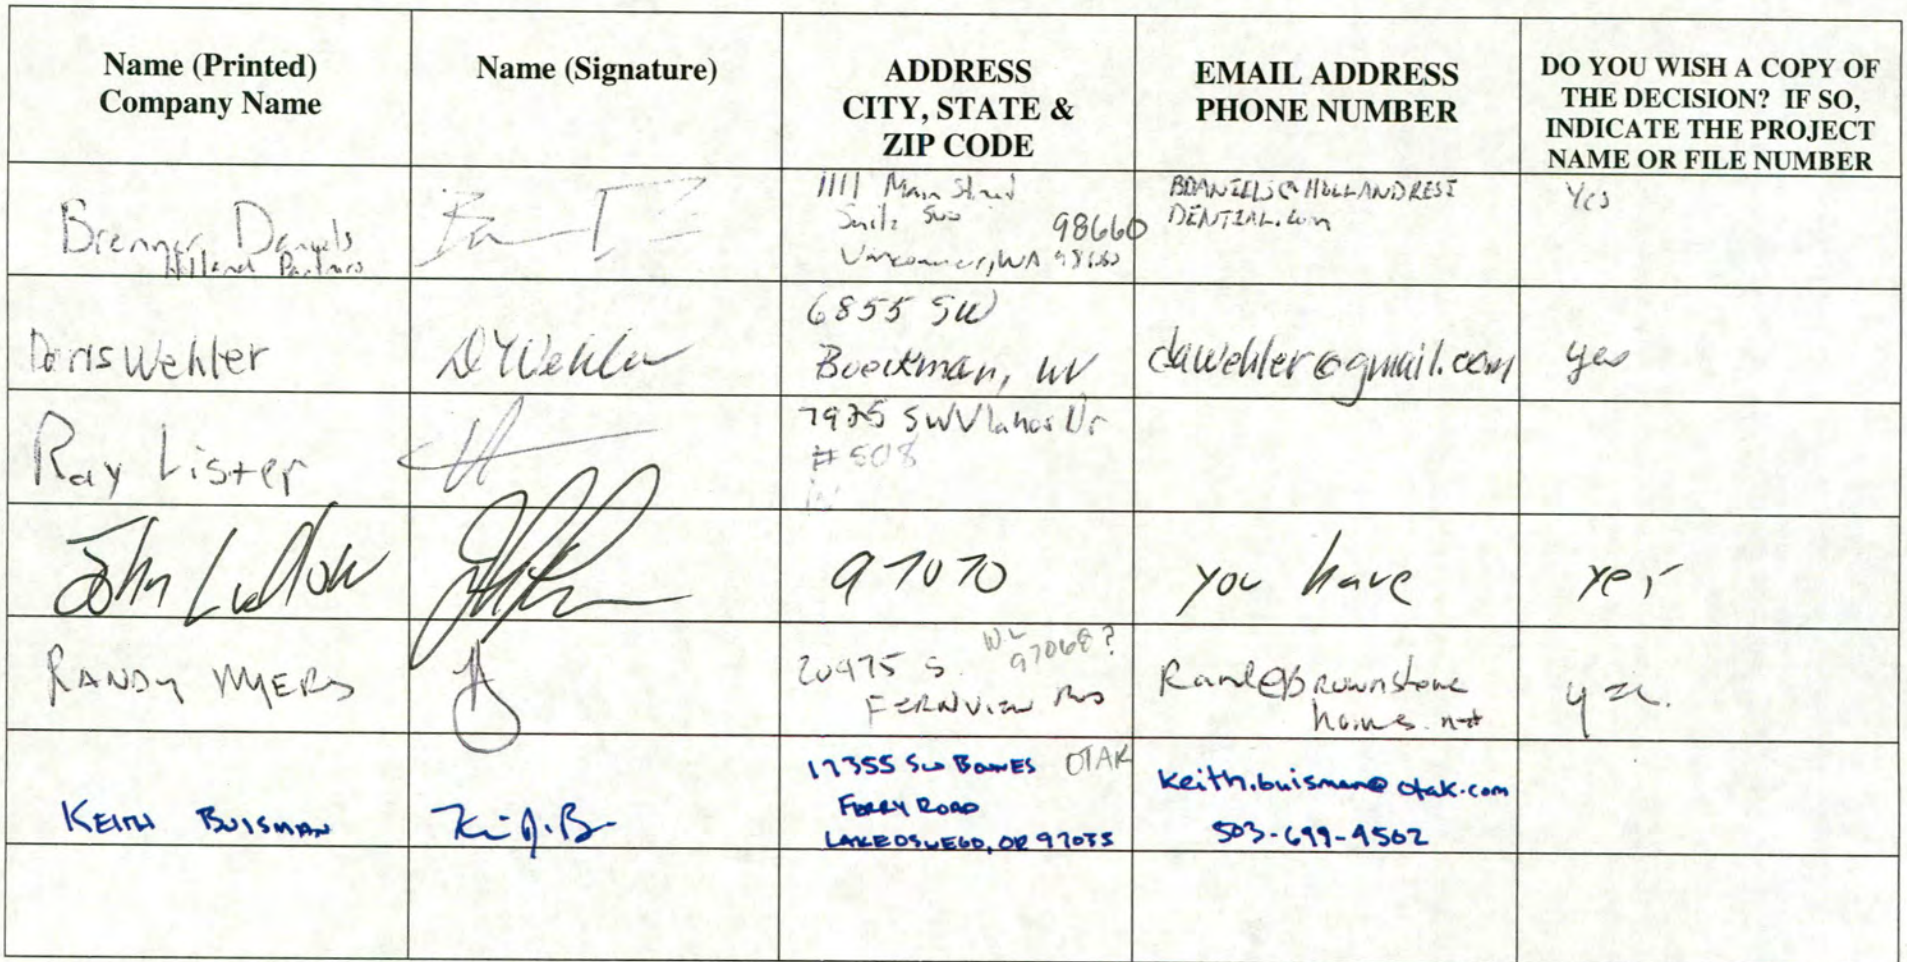 Name (Printed)
Company Name
Name (Signature)
ADDRESS
CITY, STATE &
ZIP CODE
EMAIL ADDRESS
PHONE NUMBER
DO YOU WISH A COPY OF
THE DECISION? IF SO,
INDICATE THE PROJECT
NAME OR FILE NUMBER
Brenner Daniels
Holland Partners
1111 Main Street
Suite
98660
Vancouver, WA
BDANIELS@HOLLANDRESI
DENTIAL.com
Yes
Doris Wehler
DYWehler
6855 SW
Boeckman, WV
dawehler@gmail.com
yes
Ray Lister
7975 SW Vlahos Dr
#508
John Ludlow
97070
you have
yes
RANDY MYERS
20475 S.
WL
97068?
FERNVIEW RD
Rand@Brownstone
homes.net
yes.
KEITH BUISMAN
17355 SW BOONES
OTAK
FERRY ROAD
LAKE OSWEGO, OR 97035
keith.buisman@otak.com
503-699-4502